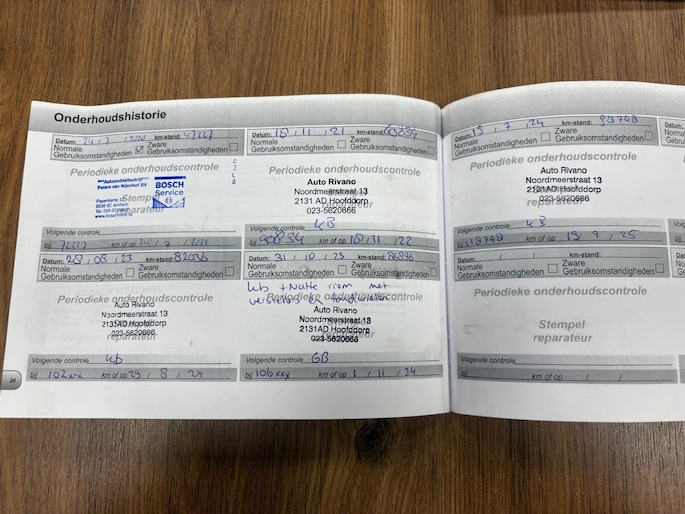 Onderhoudshistorie
Datum: 24 / 7 / 2020 km-stand: 47227
Normale Gebruiksomstandigheden Zware Gebruiksomstandigheden
Periodieke onderhoudscontrole
Automobielbedrijf
Peters van Nijenhof BV
BOSCH
Service
Stempel
reparateur
Volgende controle
bij 72227 km of op 24 / 7 / 2021
Datum: 18 / 11 / 21 km-stand: 60834
Normale Gebruiksomstandigheden Zware Gebruiksomstandigheden
Periodieke onderhoudscontrole
Auto Rivano
Noordmeerstraat 13
2131 AD Hoofddorp
023-5620666
Volgende controle KB
bij 90834 km of op 18/11/ 22
Datum: 28 / 08 / 23 km-stand: 82036
Normale Gebruiksomstandigheden Zware Gebruiksomstandigheden
Periodieke onderhoudscontrole
Auto Rivano
Noordmeerstraat 13
2131AD Hoofddorp
023-5620666
reparateur
Volgende controle kb
bij 102xxx km of op 29 / 8 / 24
28
Datum: 31 / 10 / 23 km-stand: 86896
Normale Gebruiksomstandigheden Zware Gebruiksomstandigheden
kb + Natte riem met
Periodieke onderhoudscontrole
Auto Rivano
Noordmeerstraat 13
2131AD Hoofddorp
023-5620666
reparateur
Volgende controle GB
bij 106xxx km of op 1 / 11 / 24
Datum: 13 / 7 / 24 km-stand: 98748
Normale Gebruiksomstandigheden Zware Gebruiksomstandigheden
Periodieke onderhoudscontrole
Auto Rivano
Noordmeerstraat 13
2131 AD Hoofddorp
023-5620666
reparateur
Volgende controle KB
bij 118748 km of op 13 / 7 / 25
Datum: / / km-stand:
Normale Gebruiksomstandigheden Zware Gebruiksomstandigheden
Periodieke onderhoudscontrole
Stempel
reparateur
Volgende controle
bij km of op / /